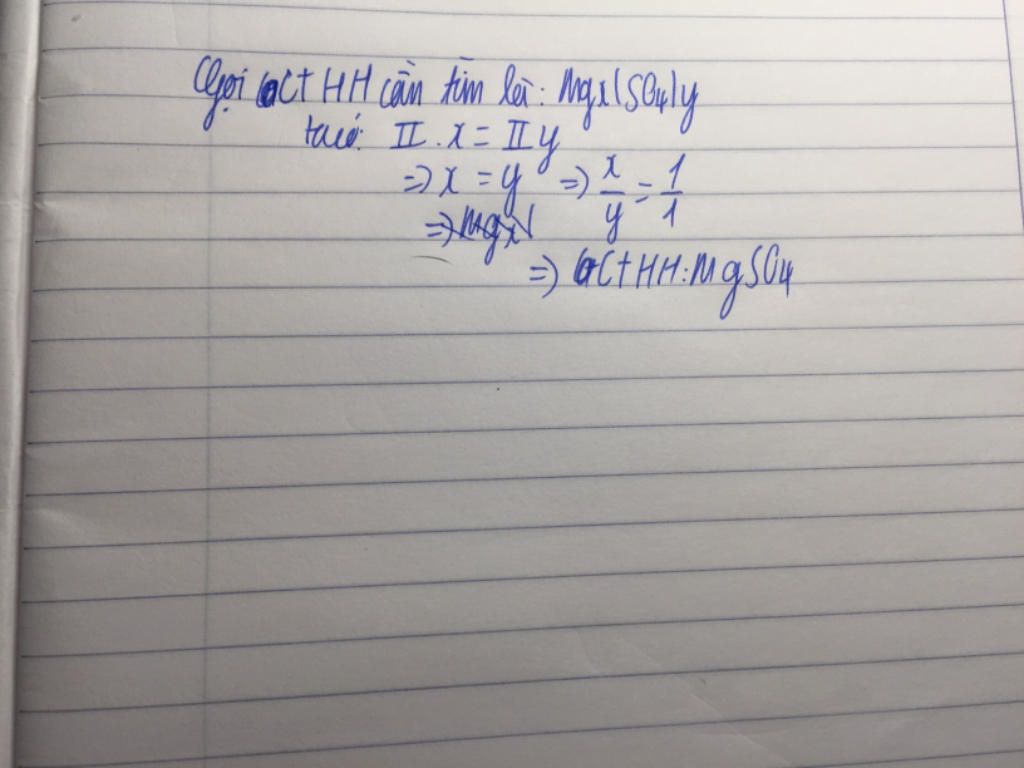 Gọi CTHH cần tìm là: Mgx(SO4)y
ta có: II.x = II y
=> x = y => x/y = 1/1
=> Mgx(
=> CTHH: MgSO4